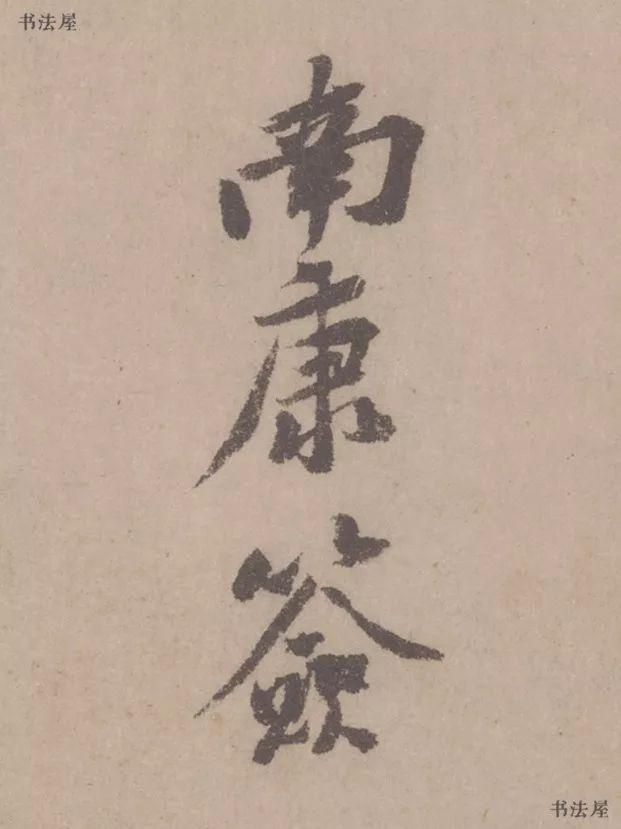 书法屋
南康簽
书法屋